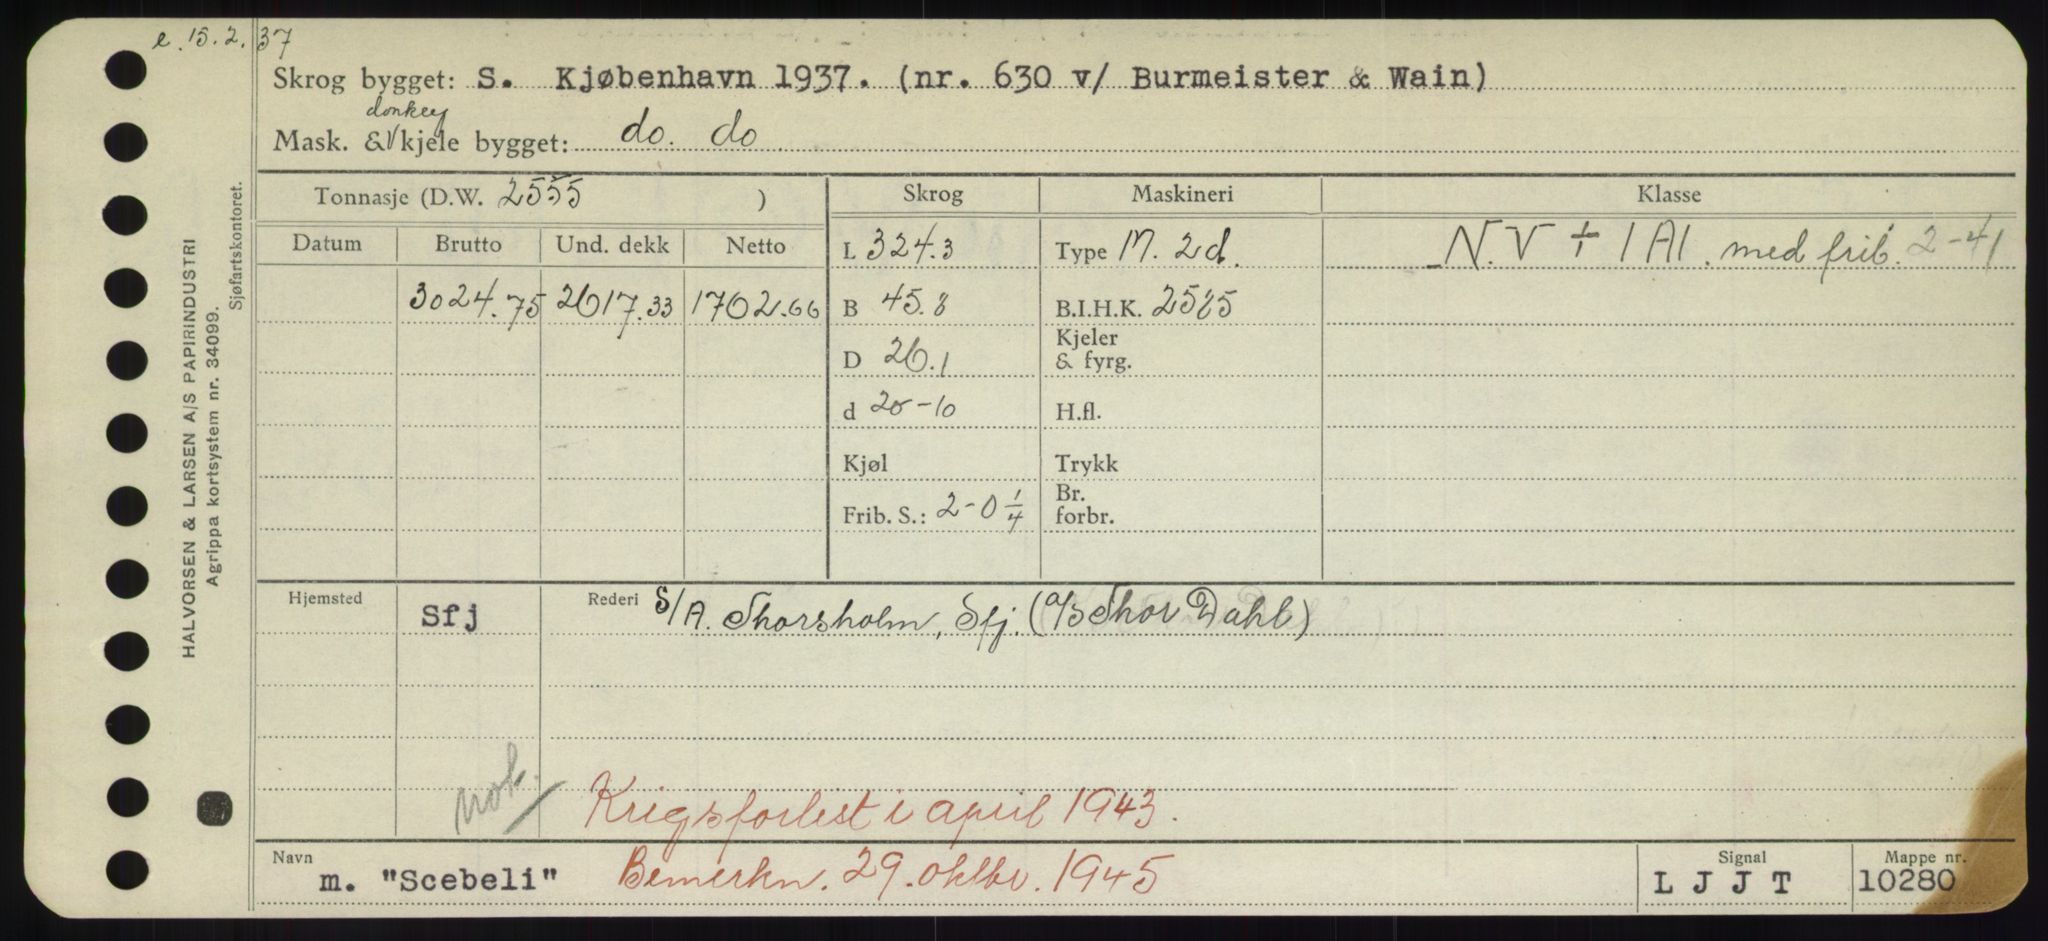 e. 15.2.37
Skrog bygget: S. Kjøbenhavn 1937. (nr. 630 v/ Burmeister & Wain)
donkey
Mask. & kjele bygget: do. do
Tonnasje (D.W. 2555 ) Skrog Maskineri Klasse
Datum Brutto Und. dekk Netto L 324.3 Type M. 2d. N.V + 1A1. med frib. 2-41
3024.75 2617.33 1702.66 B 45.8 B.I.H.K. 2525
D 26.1 Kjeler & fyrg.
d 20-10 H.fl.
Kjøl Trykk
Frib. S.: 2-0 1/4 Br. forbr.
Hjemsted Sfj Rederi S/A. Thorsholm, Sfj. (A/S Thor Dahl)
nok.
Krigsforlist i april 1943.
Bemerkn. 29. oktbr. 1945
Navn m. "Scebeli" Signal LJJT Mappe nr. 10280
HALVORSEN & LARSEN A/S PAPIRINDUSTRI
Agrippa kortsystem nr. 34099.
Sjøfartskontoret.